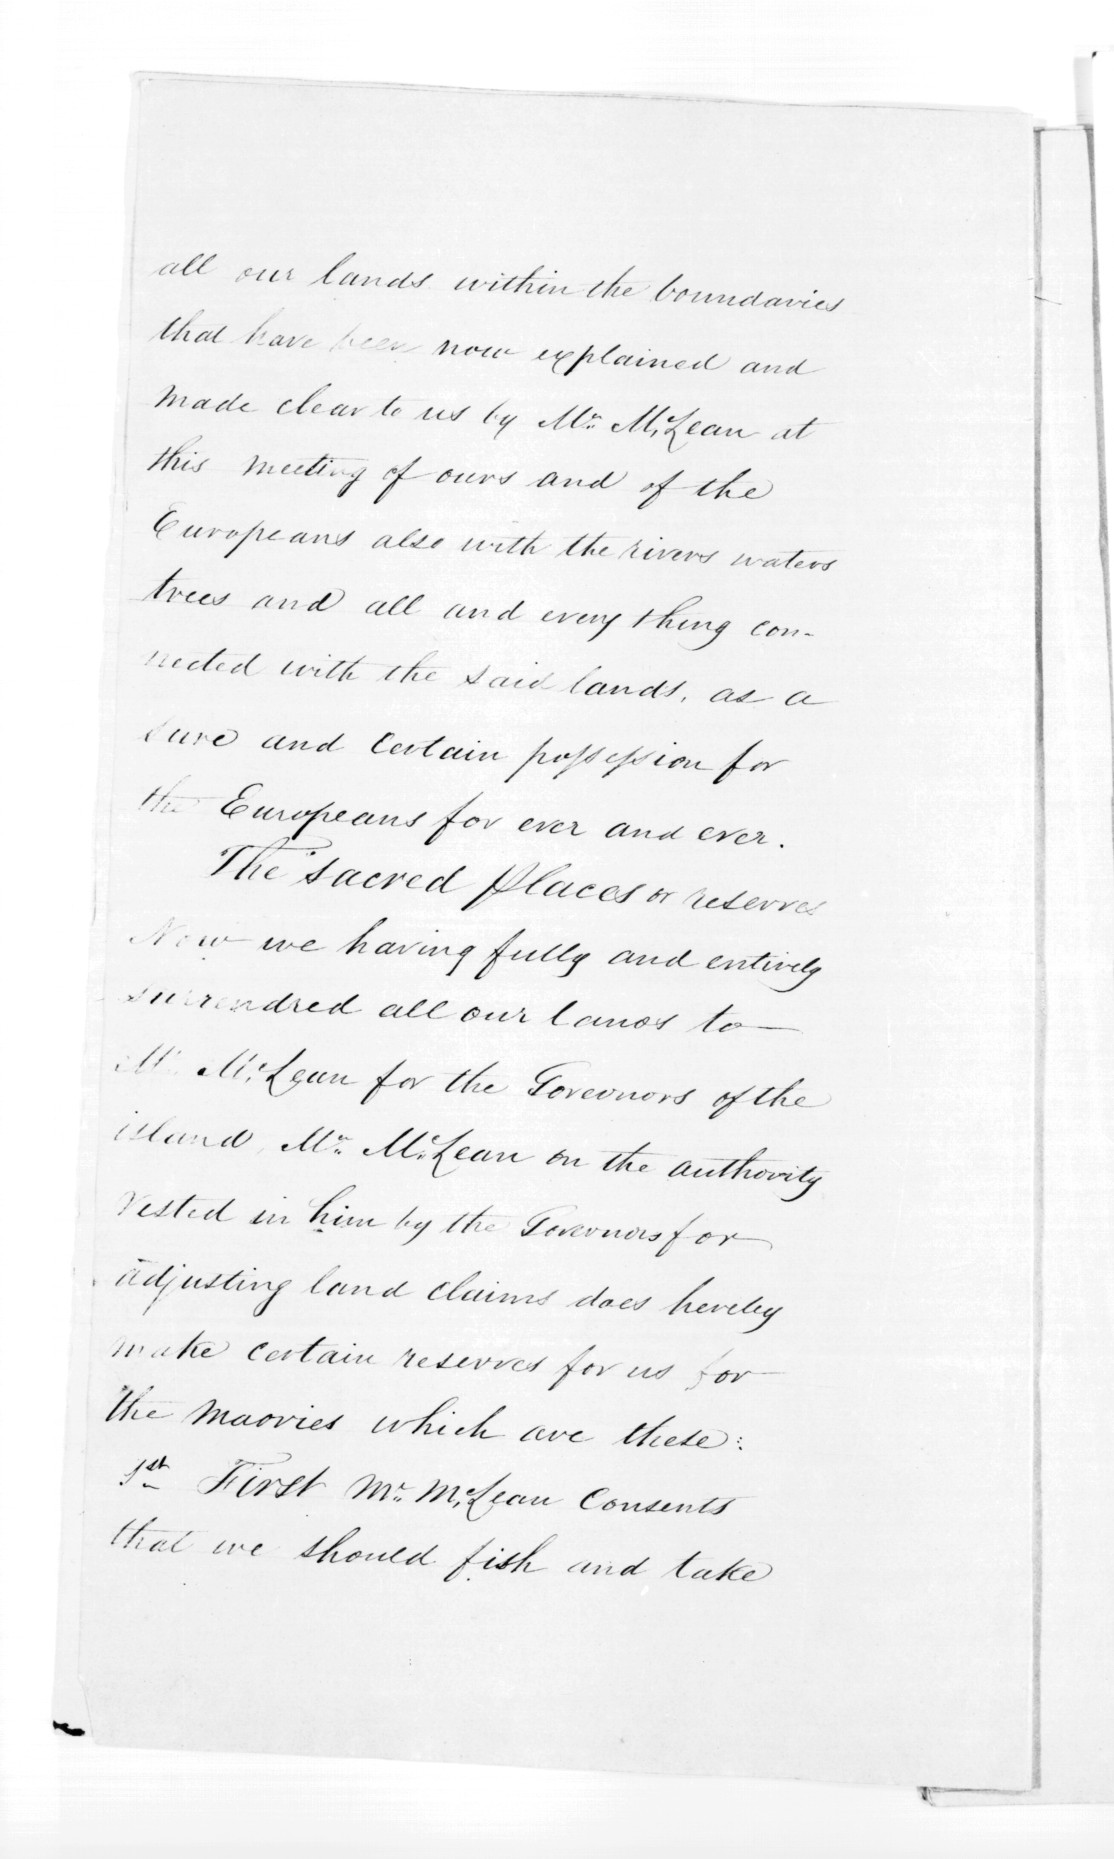 all our lands within the boundaries
that have been now explained and
made clear to us by Mr. McLean at
this meeting of ours and of the
Europeans also with the rivers waters
trees and all and every thing con-
nected with the said lands, as a
sure and certain possession for
the Europeans for ever and ever.
The sacred places or reserves
Now we having fully and entirely
surrendred all our lands to
Mr. McLean for the Goveonors of the
island, Mr. McLean on the authority
vested in him by the Goveonors for
adjusting land claims does hereby
make certain reserves for us for
the maories which are these:
1st First Mr. McLean Consents
that we should fish and take